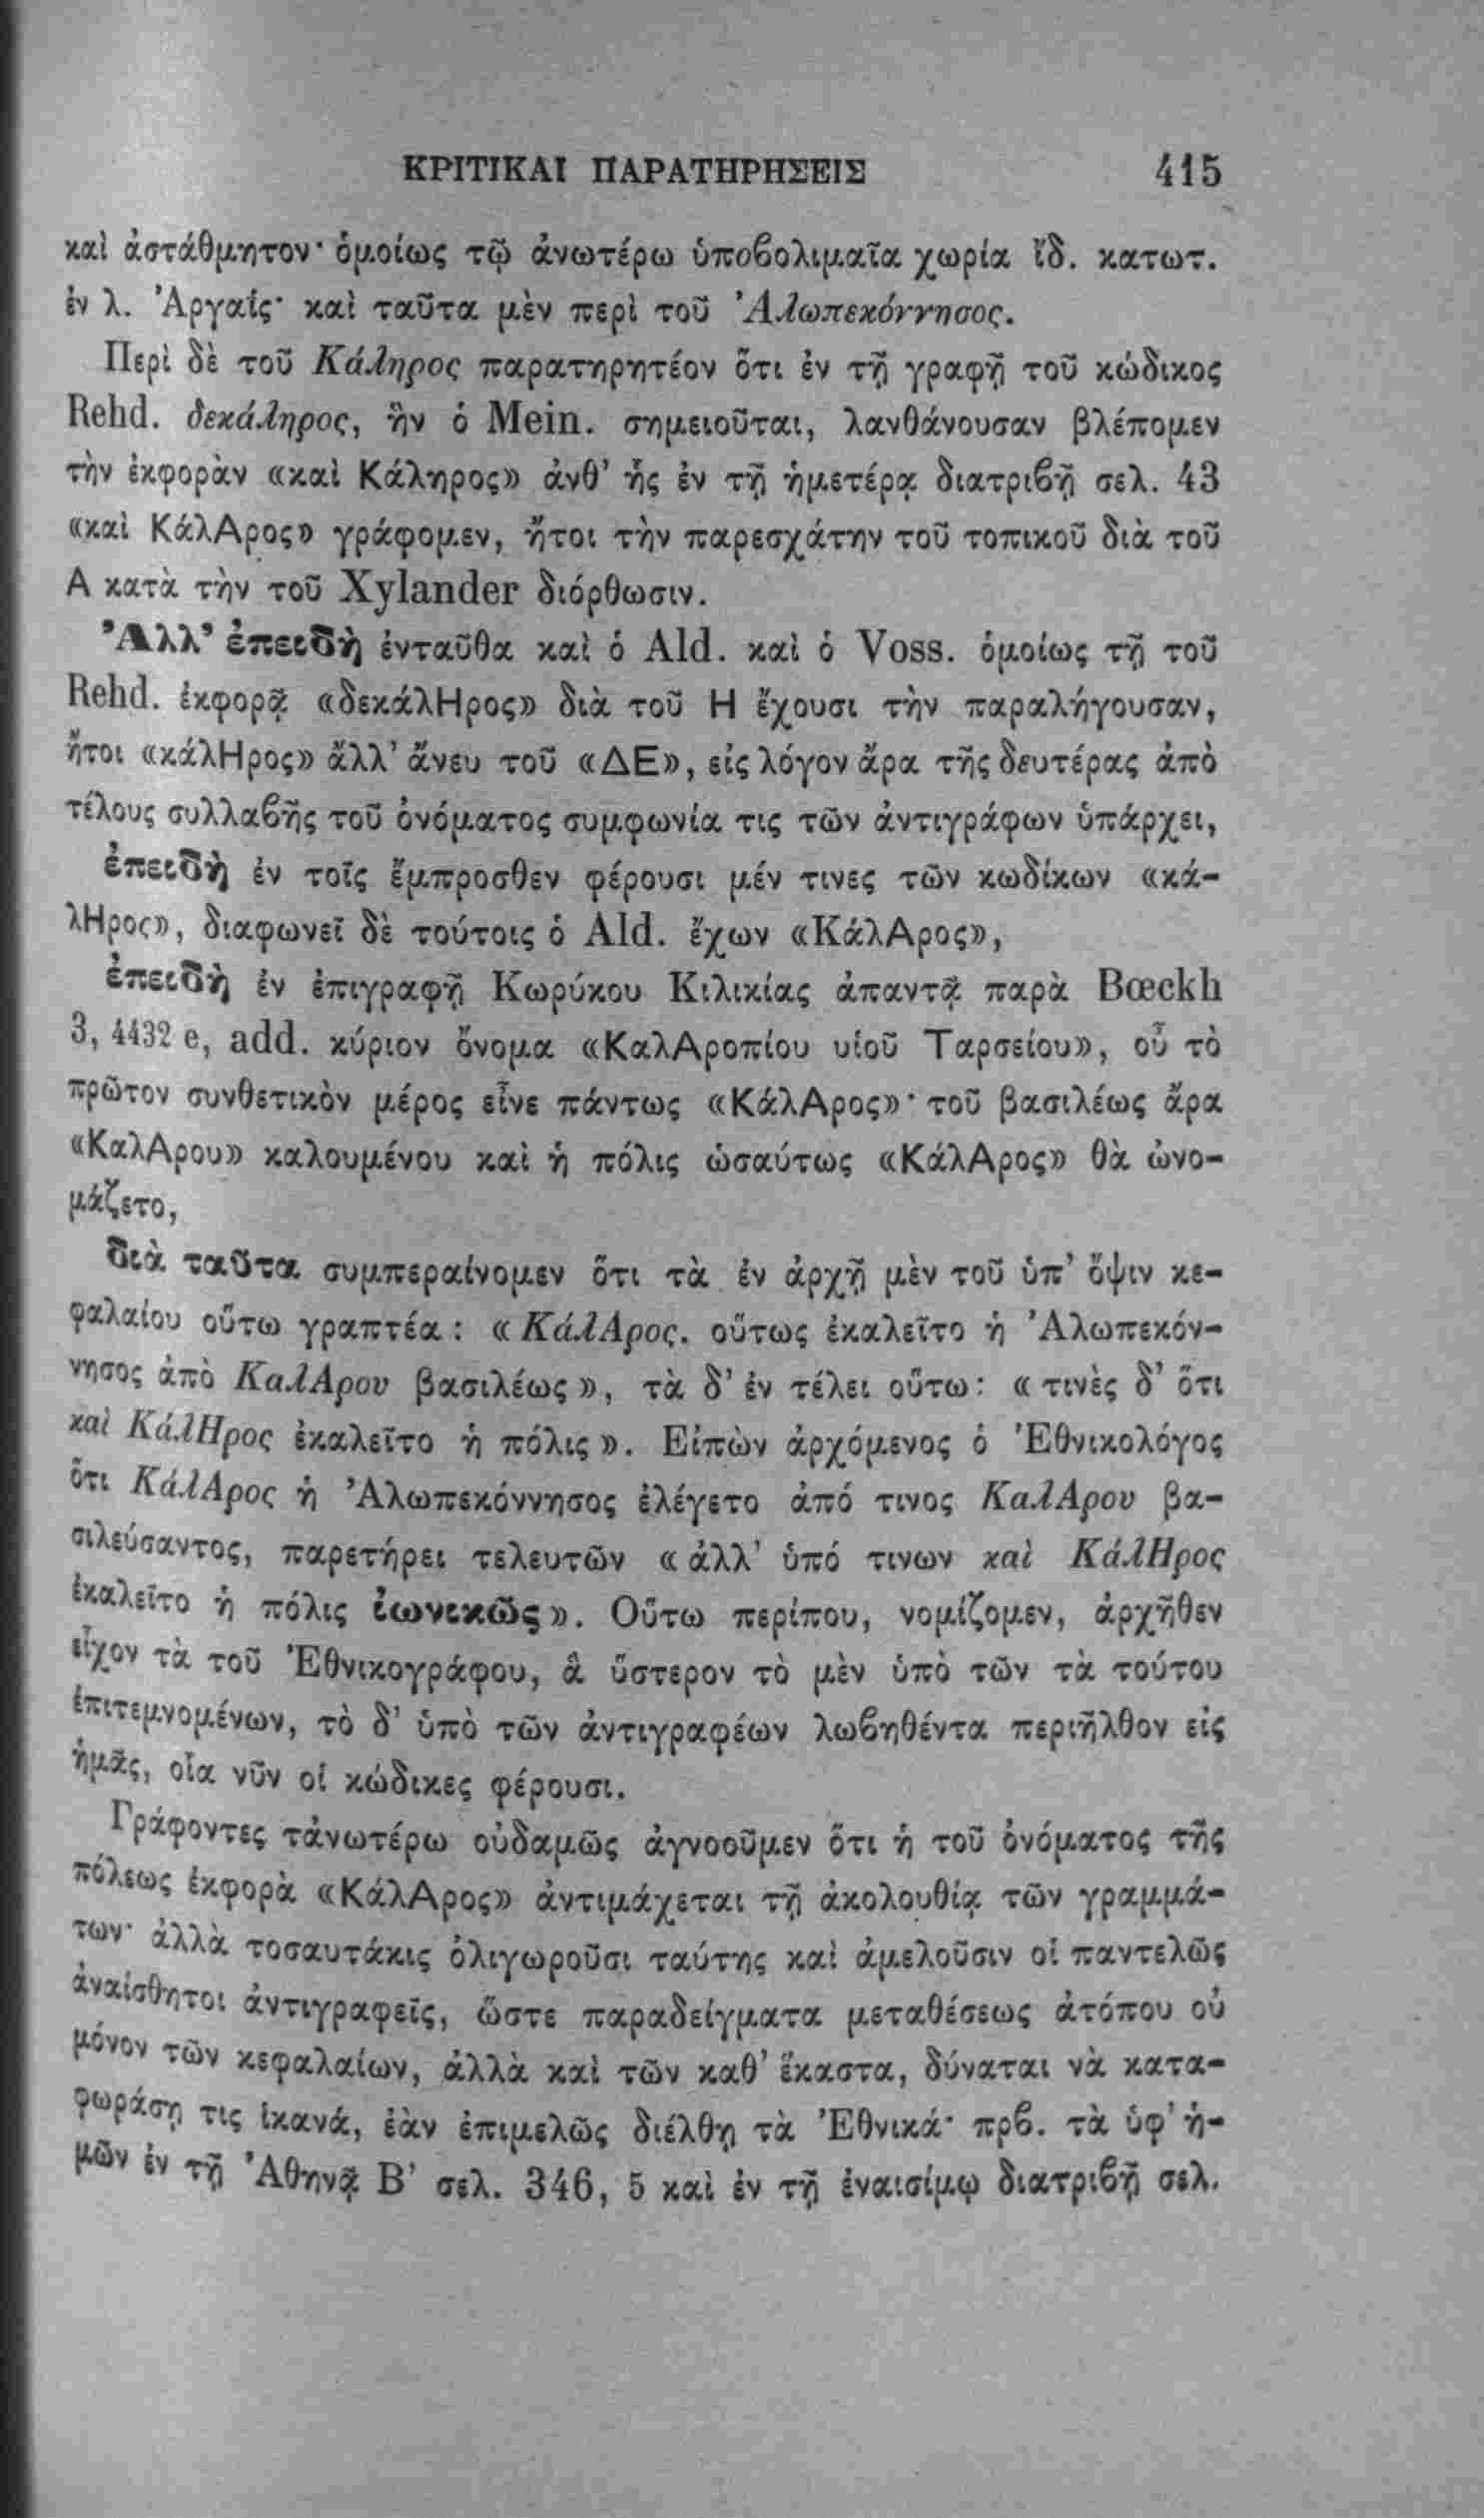 ΚΡΙΤΙΚΑΙ ΠΑΡΑΤΗΡΗΣΕΙΣ 415
καὶ ἀστάθμητον· ὁμοίως τῷ ἀνωτέρω ὑποβολιμαῖα χωρία ἴδ. κατωτ.
ἐν λ. Ἀργαίς· καὶ ταῦτα μὲν περὶ τοῦ Ἀλωπεκόννησος.
Περὶ δὲ τοῦ Κάληρος παρατηρητέον ὅτι ἐν τῇ γραφῇ τοῦ κώδικος
Rehd. δεκάληρος, ἣν ὁ Mein. σημειοῦται, λανθάνουσαν βλέπομεν
τὴν ἐκφορὰν «καὶ Κάληρος» ἀνθ’ ἧς ἐν τῇ ἡμετέρᾳ διατριβῇ σελ. 43
«καὶ ΚάλΑρος» γράφομεν, ἤτοι τὴν παρεσχάτην τοῦ τοπικοῦ διὰ τοῦ
Α κατὰ τὴν τοῦ Xylander διόρθωσιν.
Ἀλλ’ ἐπειδὴ ἐνταῦθα καὶ ὁ Ald. καὶ ὁ Voss. ὁμοίως τῇ τοῦ
Rehd. ἐκφορᾷ «δεκάλΗρος» διὰ τοῦ Η ἔχουσι τὴν παραλήγουσαν,
ἤτοι «κάλΗρος» ἄλλ’ ἄνευ τοῦ «ΔΕ», εἰς λόγον ἄρα τῆς δευτέρας ἀπὸ
τέλους συλλαβῆς τοῦ ὀνόματος συμφωνία τις τῶν ἀντιγράφων ὑπάρχει,
ἐπειδὴ ἐν τοῖς ἔμπροσθεν φέρουσι μέν τινες τῶν κωδίκων «κά-
λΗρος», διαφωνεῖ δὲ τούτοις ὁ Ald. ἔχων «ΚάλΑρος»,
ἐπειδὴ ἐν ἐπιγραφῇ Κωρύκου Κιλικίας ἀπαντᾷ παρὰ Bœckh
3, 4432 e, add. κύριον ὄνομα «ΚαλΑροπίου υἱοῦ Ταρσείου», οὗ τὸ
πρῶτον συνθετικὸν μέρος εἶνε πάντως «ΚάλΑρος»· τοῦ βασιλέως ἄρα
«ΚαλΑρου» καλουμένου καὶ ἡ πόλις ὡσαύτως «ΚάλΑρος» θὰ ὠνο-
μάζετο,
διὰ ταῦτα συμπεραίνομεν ὅτι τὰ ἐν ἀρχῇ μὲν τοῦ ὑπ’ ὄψιν κε-
φαλαίου οὕτω γραπτέα : «ΚάλΑρος. οὕτως ἐκαλεῖτο ἡ Ἀλωπεκόν-
νησος ἀπὸ ΚαλΑρου βασιλέως», τὰ δ’ ἐν τέλει οὕτω: «τινὲς δ’ ὅτι
καὶ ΚάλΗρος ἐκαλεῖτο ἡ πόλις». Εἰπὼν ἀρχόμενος ὁ Ἐθνικολόγος
ὅτι ΚάλΑρος ἡ Ἀλωπεκόννησος ἐλέγετο ἀπό τινος ΚαλΑρου βα-
σιλεύσαντος, παρετήρει τελευτῶν «ἀλλ’ ὑπό τινων καὶ ΚάλΗρος
ἐκαλεῖτο ἡ πόλις ἰωνικῶς». Οὕτω περίπου, νομίζομεν, ἀρχῆθεν
εἶχον τὰ τοῦ Ἐθνικογράφου, ἃ ὕστερον τὸ μὲν ὑπὸ τῶν τὰ τούτου
ἐπιτεμνομένων, τὸ δ’ ὑπὸ τῶν ἀντιγραφέων λωβηθέντα περιῆλθον εἰς
ἡμᾶς, οἷα νῦν οἱ κώδικες φέρουσι.
Γράφοντες τἀνωτέρω οὐδαμῶς ἀγνοοῦμεν ὅτι ἡ τοῦ ὀνόματος τῆς
πόλεως ἐκφορὰ «ΚάλΑρος» ἀντιμάχεται τῇ ἀκολουθίᾳ τῶν γραμμά-
των· ἀλλὰ τοσαυτάκις ὀλιγωροῦσι ταύτης καὶ ἀμελοῦσιν οἱ παντελῶς
ἀναίσθητοι ἀντιγραφεῖς, ὥστε παραδείγματα μεταθέσεως ἀτόπου οὐ
μόνον τῶν κεφαλαίων, ἀλλὰ καὶ τῶν καθ’ ἕκαστα, δύναται νὰ κατα-
φωράσῃ τις ἱκανά, ἐὰν ἐπιμελῶς διέλθῃ τὰ Ἐθνικά· πρβ. τὰ ὑφ’ ἡ-
μῶν ἐν τῇ Ἀθηνᾷ Β’ σελ. 346, 5 καὶ ἐν τῇ ἐναισίμῳ διατριβῇ σελ.